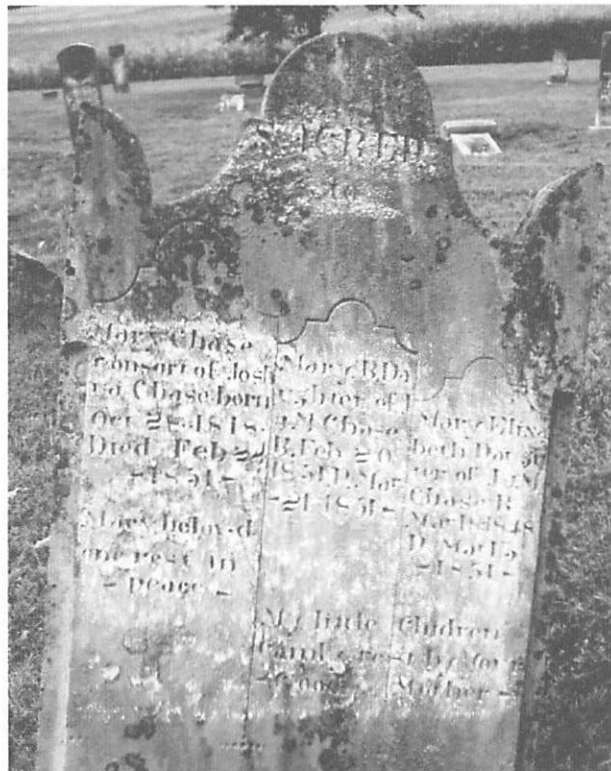 SACRED
to
Mary Chase
Consort of Josh
ua Chase born
Oct 28 1818
Died Feb 24
-1851-
Mary belov.d
one rest in
-peace-
Mary B. Da
ughter of J
&M Chase
B. Feb 20
1851 D. Mar
-21 1851-
My little
Good
Mary Eliza
beth Daugh
ter of J&M
Chase B.
Mar 18 1848
D. Mar
-1851-
Children
Mother